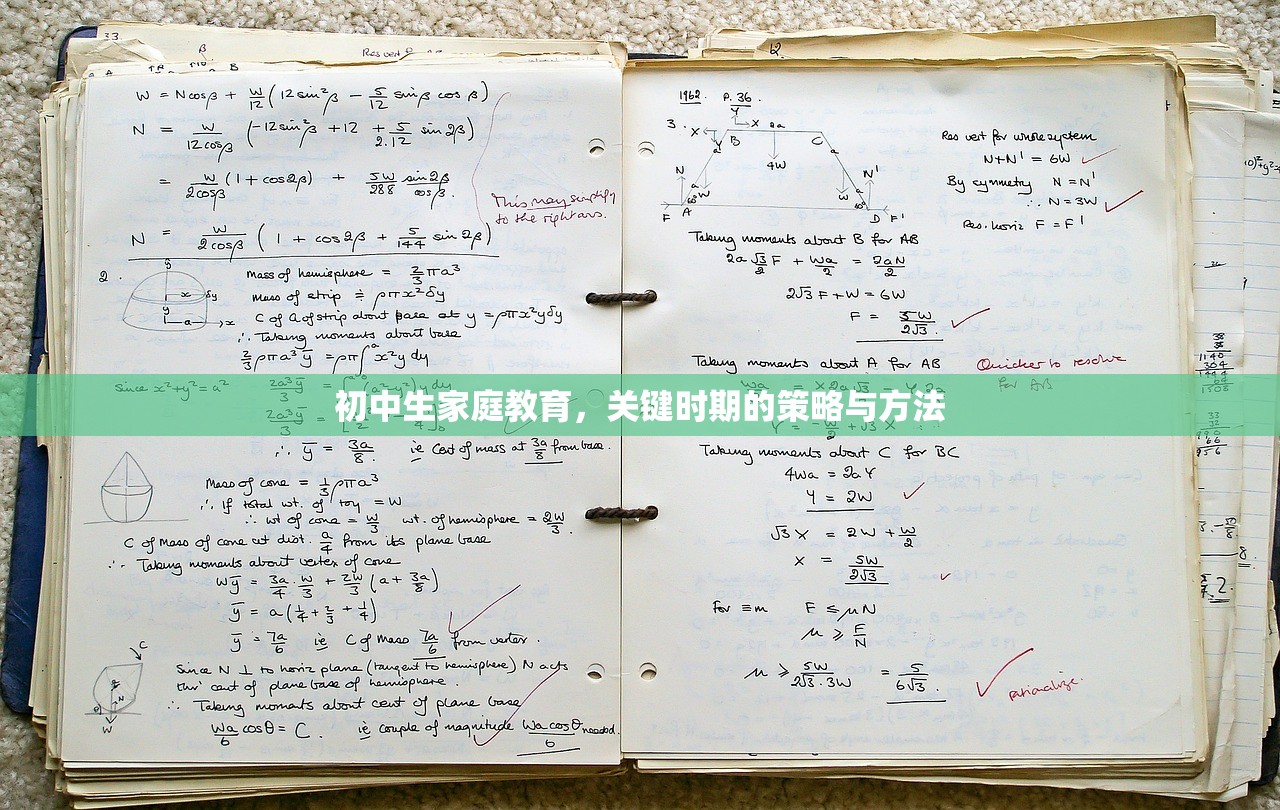 33.
β
W = N cosβ + W/12 (12 sin²β − 5/12 sinβ cosβ)
N = W/12cosβ (−12 sin²β + 12 + 5/2.12 sin 2β)
= W/2cosβ (1 + cos2β) + 5W/288 sin2β/cosβ.
This may simplify
to the right ans.
N = W/2cosβ (1 + cos2β + 5/144 sin 2β)
2.
Mass of hemisphere = 2/3 πa³
mass of strip ≑ ρπx²δy
C of G of strip about base at y = ρπx²yδy
∴ Taking moments about base
2/3 ρπa³ȳ = ρπ∫ᵃ₀ x²y dy
since x²+y² = a²
初中生家庭教育，关键时期的策略与方法
∴ ȳ = 3a/8 ie Cent of mass at 3a/8 from base.
Mass of cone = 1/3 ρπa³
∴ If total wt. of toy = W
∴ wt of cone = W/3 wt. of hemisphere = 2W/3.
C of Mass of cone at dist. a/4 from its plane base
∴ Taking moments about vertex of cone
Wȳ = 3a/4 · W/3 + 2W/3 (a + 3a/8)
ȳ = a(1/4 + 2/3 + 1/4)
ȳ = 7a/6 ie C of Mass 7a/6 from vertex.
Since N ⊥ to horiz plane (tangent to hemisphere) N acts
thro' cent of plane base of hemisphere.
∴ Taking moments about cent of plane base
Wa/6 cosθ = C. ie couple of magnitude Wa cosθ/6 needed.
1962. P. 36.
3.
Res vert for whole system
N+N' = 6W
By symmetry N = N'
∴ N = 3W
Res. horiz F = F'
Taking moments about B for AB
2a √3/2 F + Wa/2 = 2aN/2
2√3 F + W = 6W
F = 5W/2√3.
Taking moments about A for AB
Quicker to resolve
for AB
Taking moments about C for BC
4Wa = 2aY
Y = 2W
√3 X = 2W + W/2
X = 5W/2√3
For ≡m F ≤ μN
μ ≥ F/N
μ ≥ 5W/2√3.3W = 5/6√3.
rationalize.